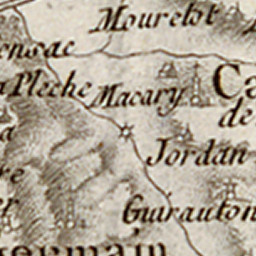 Mourelot
ensac
a Pleche Macary Ca
de
a
Jordan
re
er
Guirauton
ermain